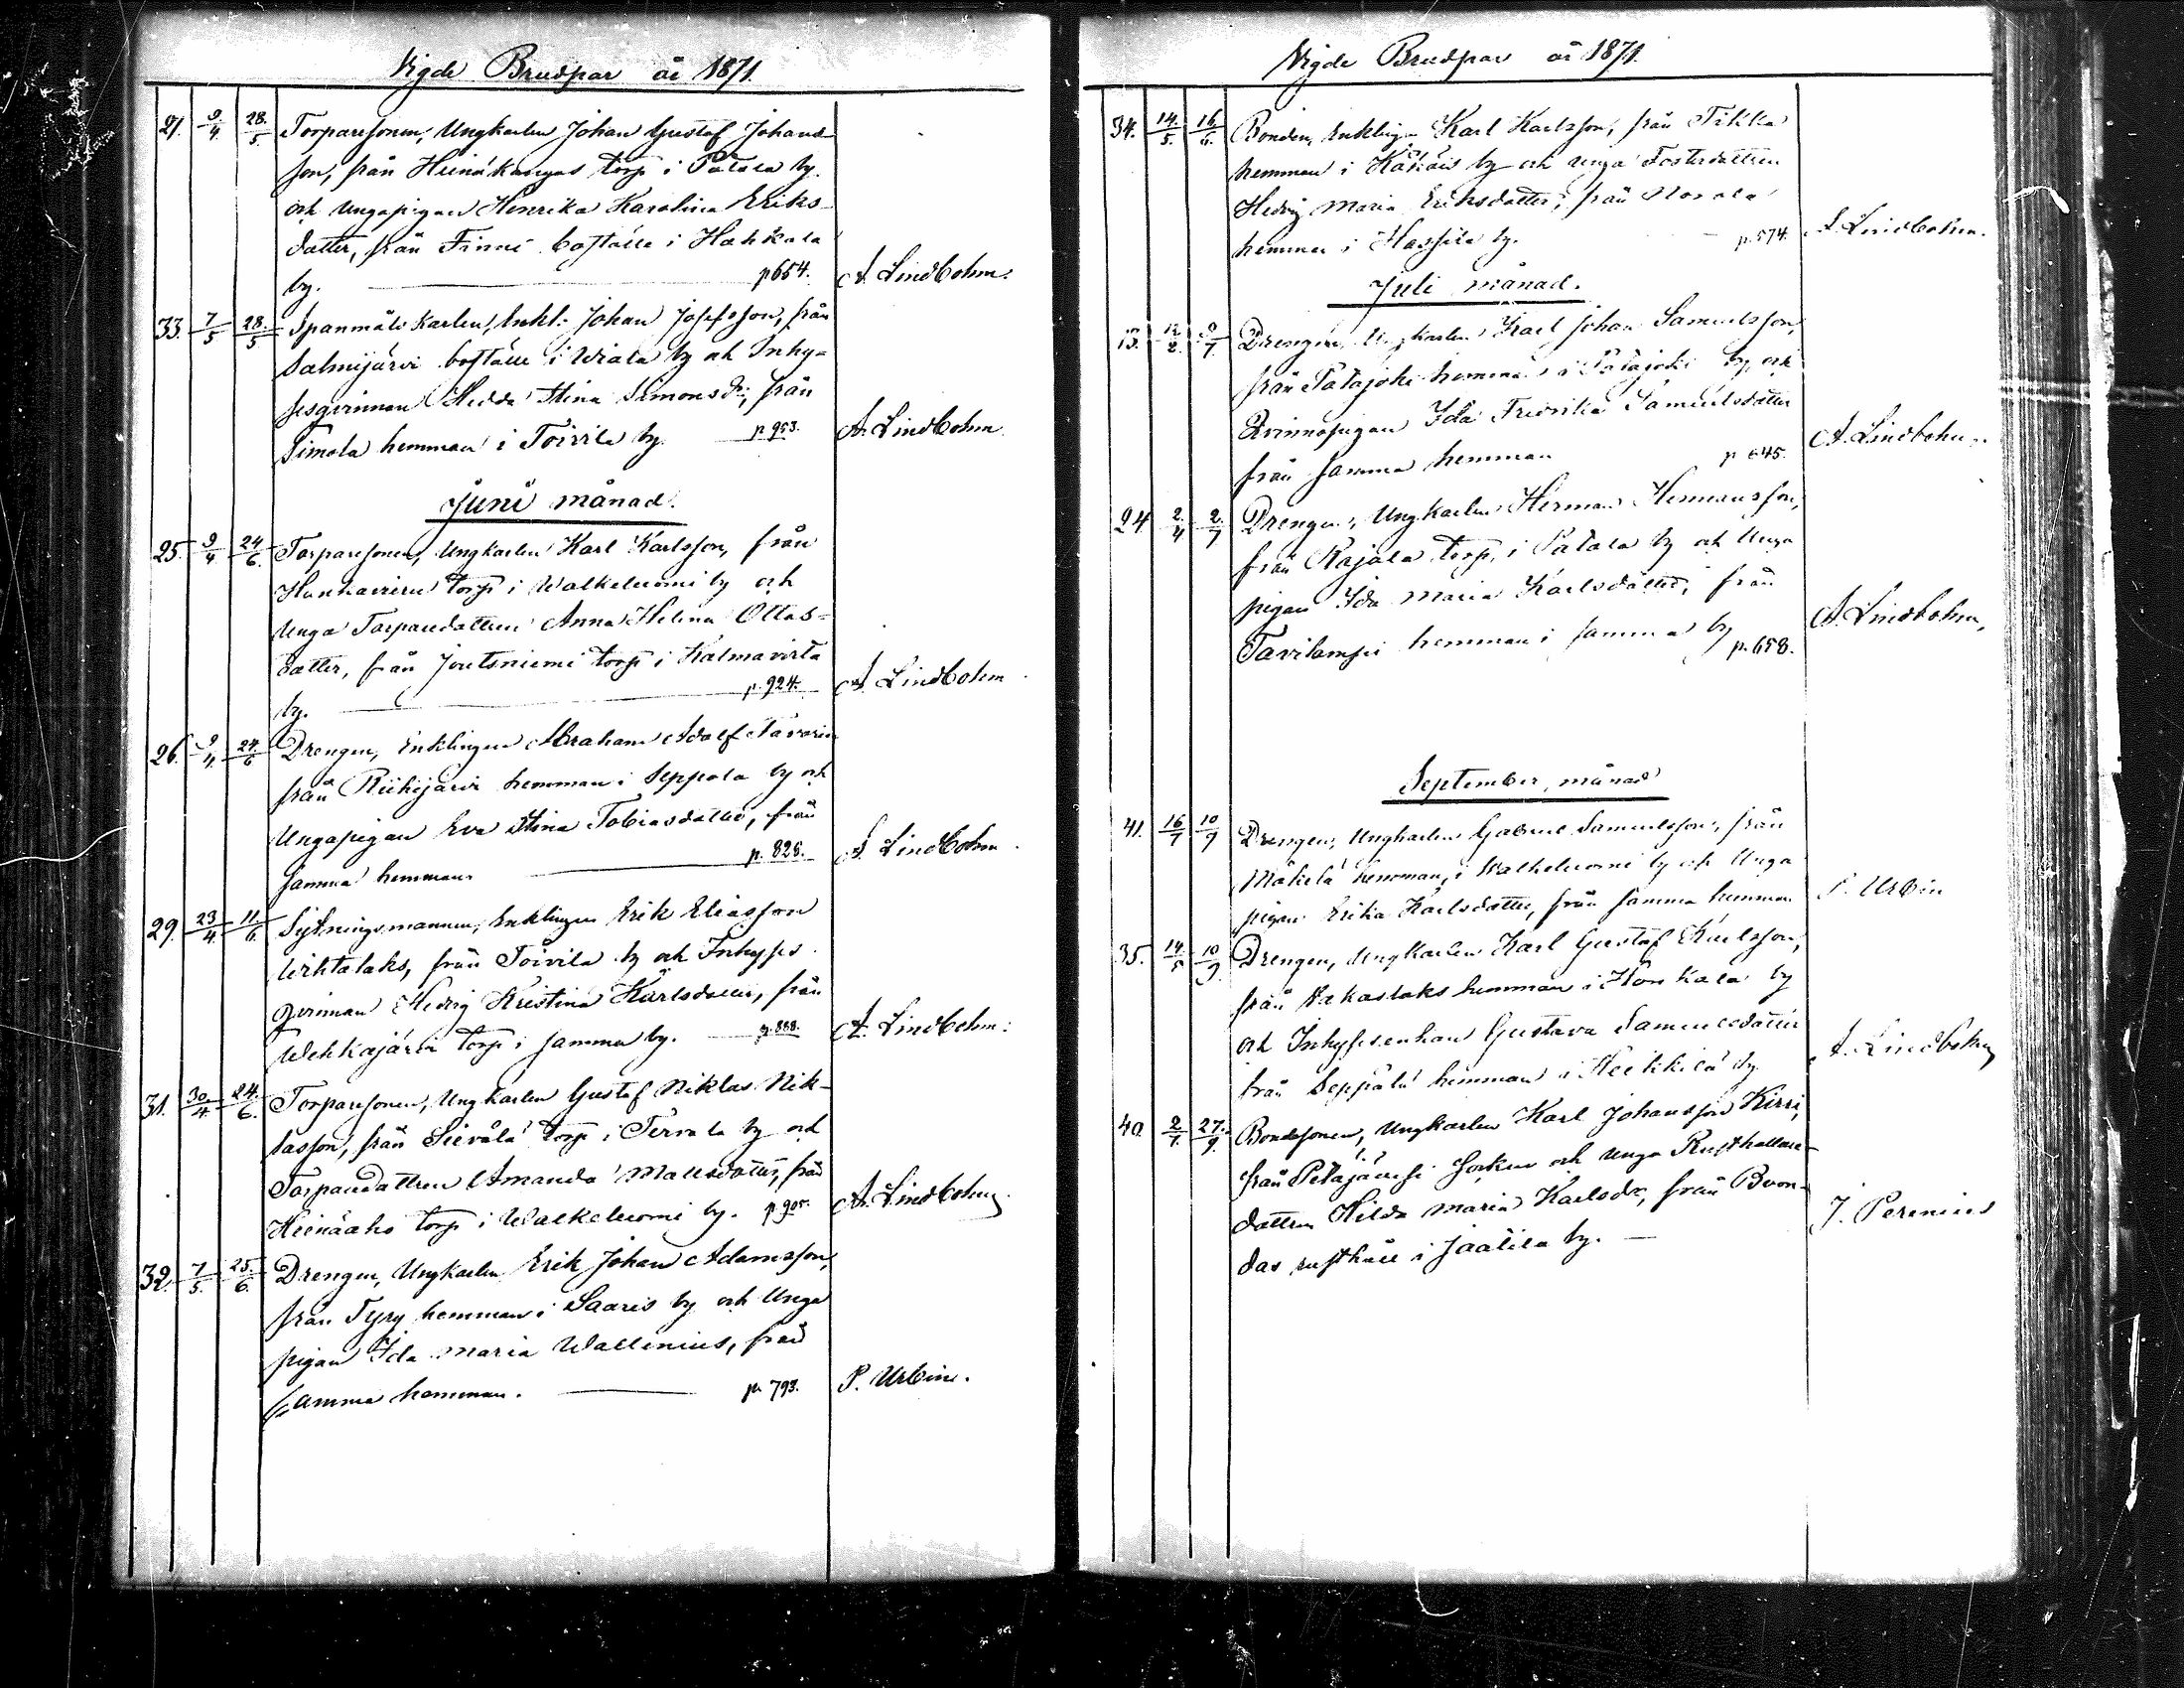 Vigde Brudpar år 1871.
21. 9/4. 28./5. Torparesonen, Ungkarlen Johan Gustaf Johans-
son, från Heinäkangas torp i Patala by.
och Ungapigan Henrika Karolina Eriks-
dotter, från boställe i Hahkala
by. p 654. A. Lindbohm.
33. 7/5 28./5 Spanmåls Karlen, Enkl: Johan Josefsson, från
Salmijärvi boställe i Wiala by och Inhy-
sesqvinnan Hedda Stina Simonsdr, från
Simola hemman i Toivila by p. 953. A. Lindbohm.
Juni månad.
25. 9/4 24/6. Torparesonen, Ungkarlen Karl Karlsson, från
torp i Walkeluomi by och
Unga Torparedottren Anna Helena Ottos-
dotter, från Joutsniemi torp i Kalmavirta
by. p. 924. A. Lindbohm
26. 9/4. 24./6 Drengen, Enklingen Abraham Adolf
från Riihijärvi hemman i Seppola by och
Ungapigan Eva Stina Tobiasdotter, från
samma hemman. p. 828. A. Lindbohm.
29. 23/4. 11./6 Sytningsmannen, Enklingen Erik Eliasson
Wihtalaks, från Toivila by och Inhyses
qvinnan Hedvig Kristina Karlsdotter, från
Wehkajärvi torp i samma by. p. 888. A. Lindbohm.
31. 30./4. 24./6. Torparesonen, Ungkarlen Gustaf Niklas Nik-
lasson, från Sievälä torp i Tervala by och
Torparedottren Amanda Mattsdotter, från
Heinäaho torp i Walkeluomi by. p. 905. A. Lindbohm.
32. 7/5. 25./6. Drengen, Ungkarlen Erik Johan Adamsson,
från Tyry hemman i Saaris by och Unga
pigan Ida Maria Wallenius, från
samma hemman. p. 793. P. Urbin.
Vigde Brudpar år 1871.
34. 14./5. 16./6. Bonden, Enklingen Karl Karlsson, från Tikka
hemman i by och unga Fosterdottren
Hedvig Maria Eriksdotter, från
hemman i Hassila by. p. 574. A. Lindbohm.
Juli månad.
13. 12/2. 9/7. Drengen, Ungkarlen Karl Johan Samuelsson,
från Patajoki hemman i Patajoki by och
Qvinnopigan Ida Fredrika Samuelsdotter
från samma hemman p 645. A. Lindbohm.
24 2./4 2./7 Drengen, Ungkarlen Herman Hermansson,
från Rajala torp i Patala by och Unga
pigan Ida Maria Karlsdotter, från
Tavilampi hemman i samma by p. 658. A. Lindbohm.
September månad
41. 16/7 10/9 Drengen, Ungkarlen Gabriel Samuelsson, från
Mäkelä hemman, i Walkeluomi by och Unga
pigan Erika Karlsdotter, från samma hemman P. Urbin
35. 14./5 10/9 Drengen, Ungkarlen Karl Gustaf Karlsson,
från hemman i Honkala by
och Inhysesenkan Gustava Samuelsdotter
från Seppälä hemman i Heikkilä by. A. Lindbohm
40. 2/7. 27./9. Bondesonen, Ungkarlen Karl Johansson Kirri,
från Petäjävesi socken och Unga Rusthållare-
dottren Hilda Maria Karlsdr, från Bvon-
das rusthåll i Jaalila by. J. Perenius